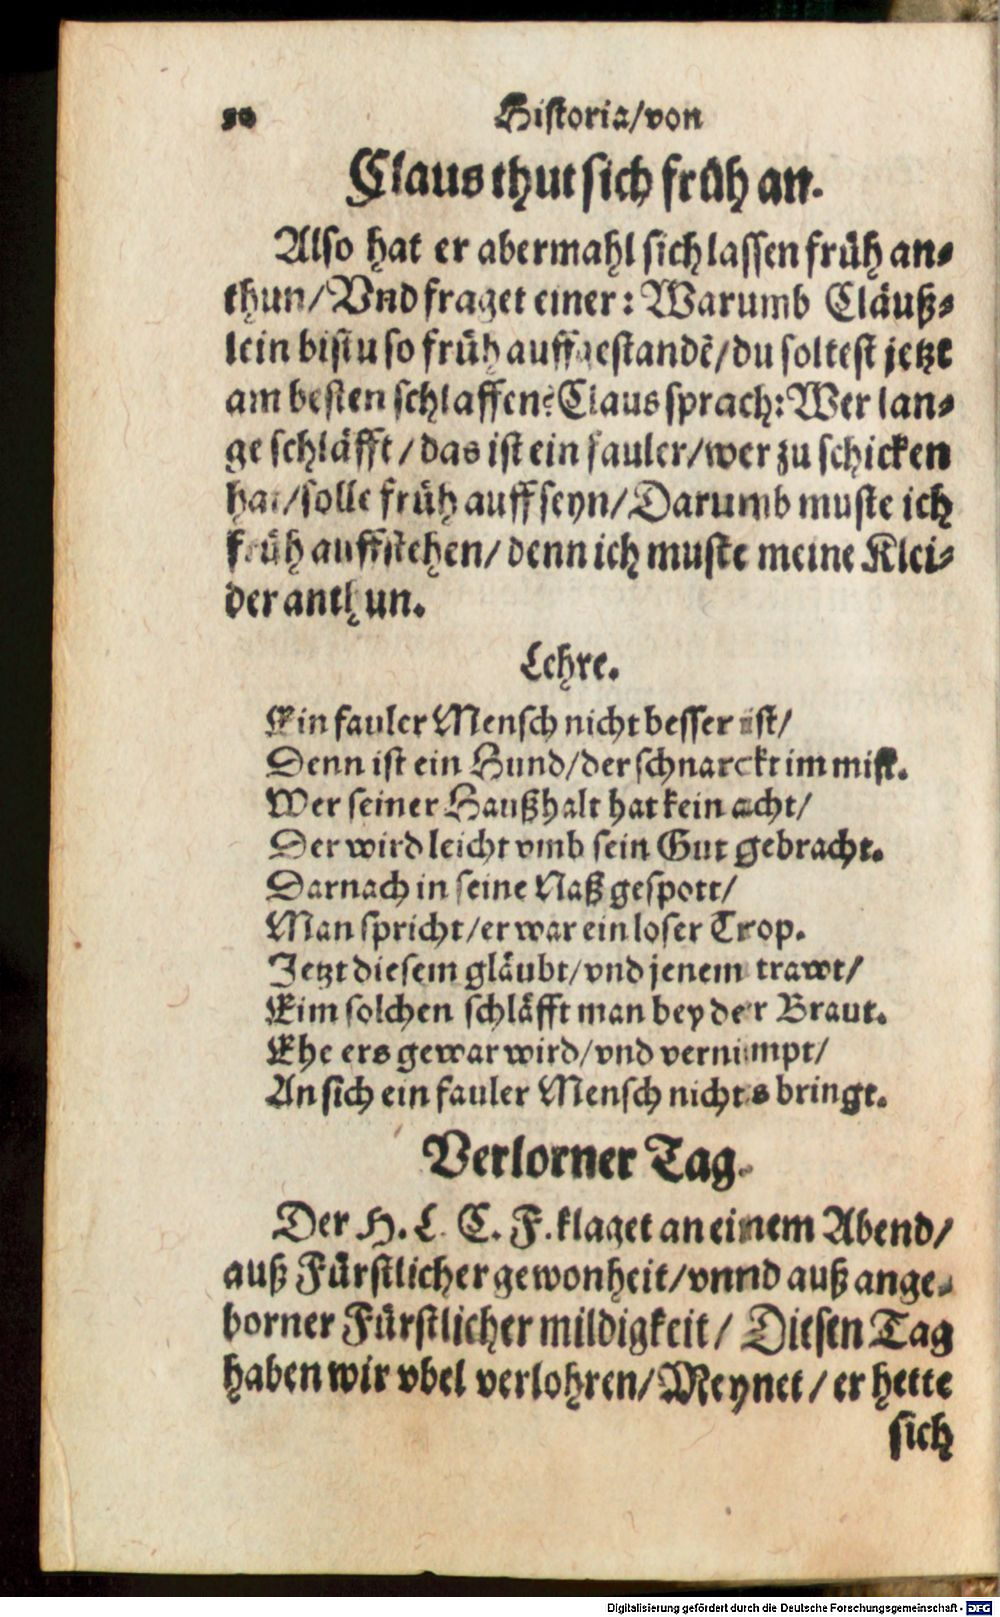 50 Historia/von
Claus thut sich früh an.
Also hat er abermahl sich lassen früh an-
thun/Vnd fraget einer: Warumb Cläuß-
lein bistu so früh auffgestandẽ/du soltest jetzt
am besten schlaffen? Claus sprach: Wer lan-
ge schläfft/das ist ein fauler/wer zu schicken
hat/solle früh auff seyn/Darumb muste ich
früh auffstehen/denn ich muste meine Klei-
der anthun.
Lehre.
Ein fauler Mensch nicht besser ist/
Denn ist ein Hund/der schnarckt im mist.
Wer seiner Haußhalt hat kein acht/
Der wird leicht vmb sein Gut gebracht.
Darnach in seine Naß gespott/
Man spricht/er war ein loser Trop.
Jetzt diesem gläubt/vnd jenem trawt/
Eim solchen schläfft man bey der Braut.
Ehe ers gewar wird/vnd vernimpt/
An sich ein fauler Mensch nichts bringt.
Verlorner Tag.
Der H. L. C. F. klaget an einem Abend/
auß Fürstlicher gewonheit/vnnd auß ange-
borner Fürstlicher mildigkeit/Diesen Tag
haben wir vbel verlohren/Meynet/er hette
sich
Digitalisierung gefördert durch die Deutsche Forschungsgemeinschaft - DFG